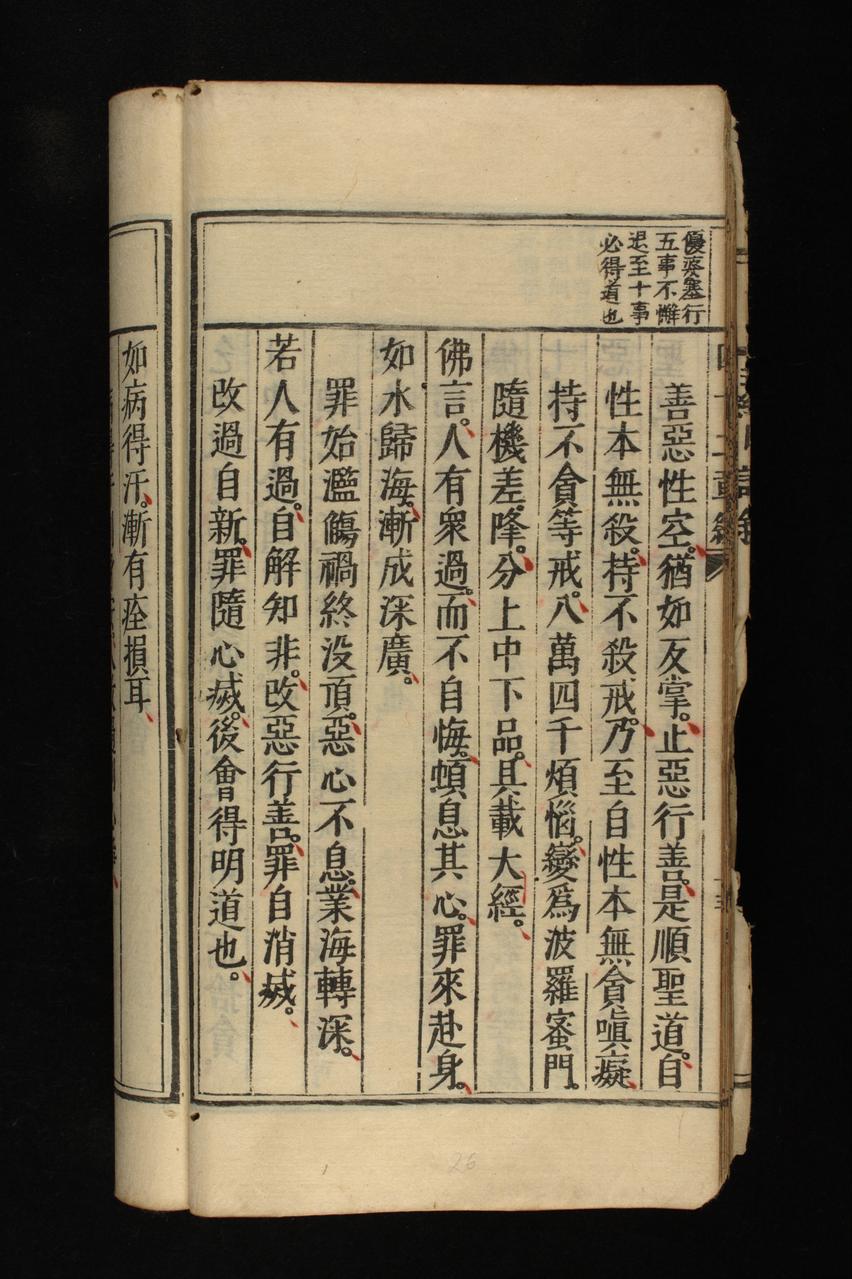 優婆塞行
五事不懈
退至十事
必得道也
善惡性空。猶如反掌。止惡行善。是順聖道。自
性本無殺。持不殺戒。乃至自性本無貪嗔癡。
持不貪等戒。八萬四千煩惱。變爲波羅蜜門。
隨機差降。分上中下品。具載大經。
佛言。人有衆過。而不自悔。頓息其心。罪來赴身。
如水歸海。漸成深廣。
罪始濫觴禍終没頂。惡心不息。業海轉深。
若人有過。自解知非。改惡行善。罪自消滅。
改過自新。罪隨心滅。後會得明道也。
如病得汗。漸有痊損耳。